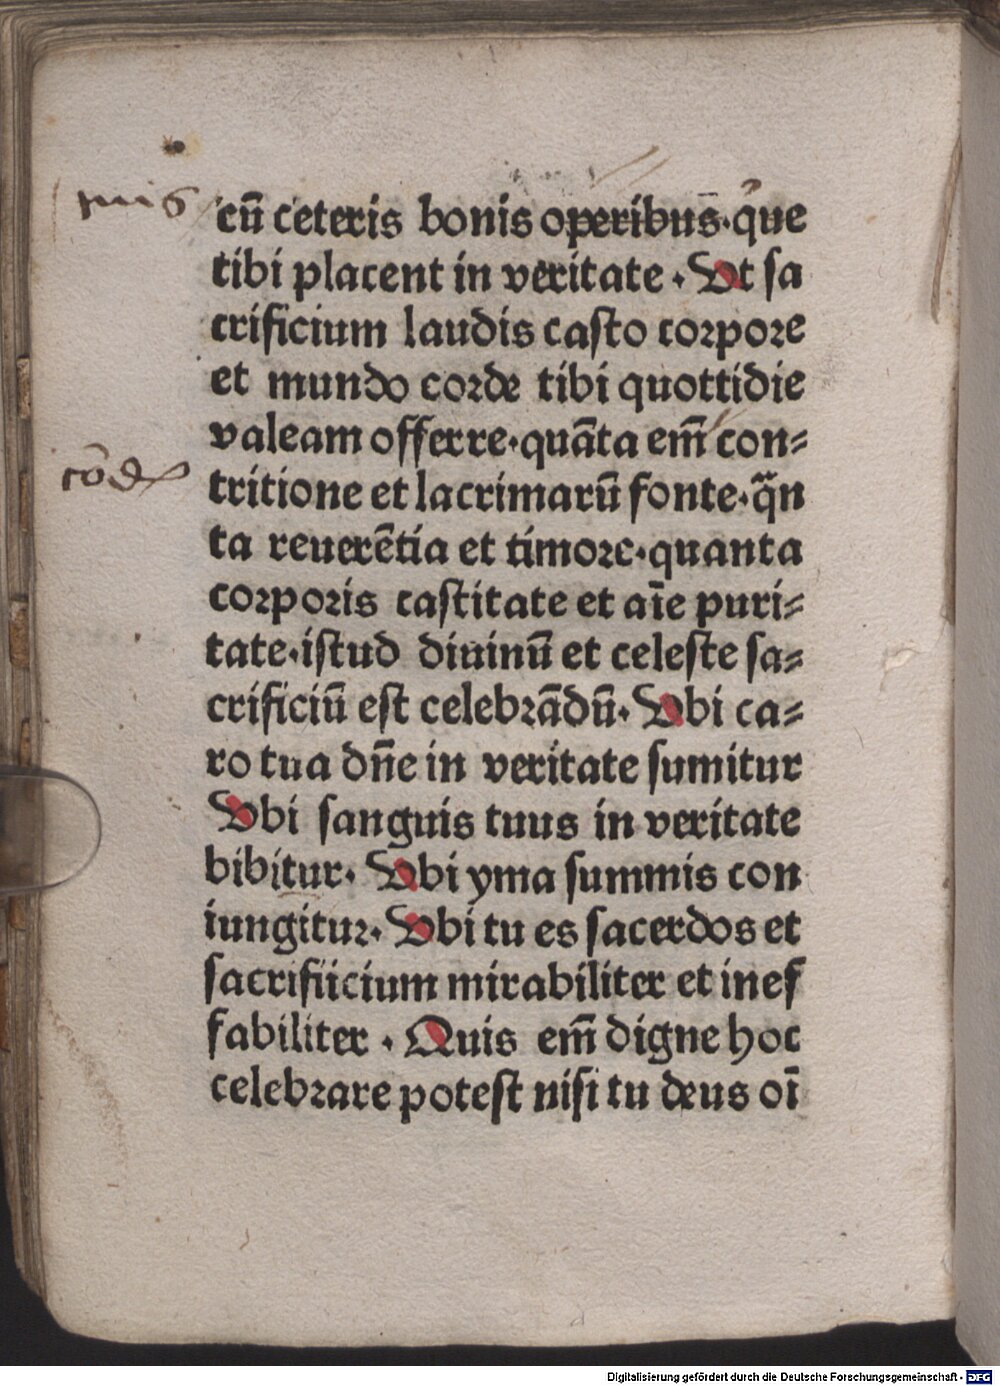 cū ceteris bonis operibus·que
tibi placent in veritate · Ut sa
crificium laudis casto corpore
et mundo corde tibi quottidie
valeam offerre·quāta em̄ con-
tritione et lacrimarū fonte·qān
ta reuerētia et timore·quanta
corporis castitate et aīe puri-
tate·istud diuinū et celeste sa-
crificiū est celebrādū· Ubi ca-
ro tua dn̄e in veritate sumitur
Ubi sanguis tuus in veritate
bibitur· Ubi yma summis con
iungitur· Ubi tu es sacerdos et
sacrifiicium mirabiliter et inef
fabiliter · Quis em̄ digne hoc
celebrare potest nisi tu deus oī
Digitalisierung gefördert durch die Deutsche Forschungsgemeinschaft - DFG